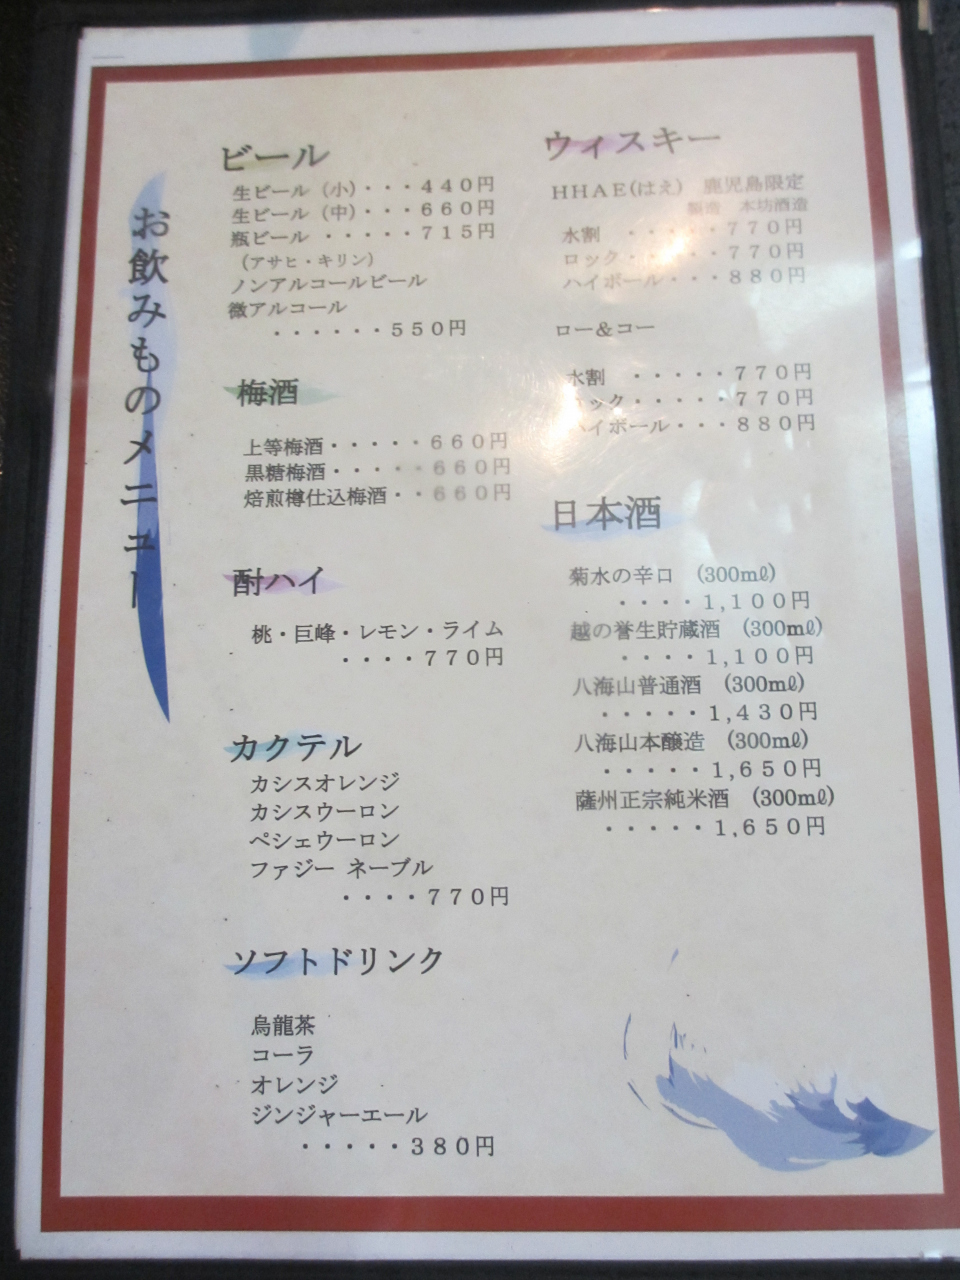 お飲みものメニュー
ビール
生ビール（小）・・・４４０円
生ビール（中）・・・６６０円
瓶ビール ・・・・・７１５円
（アサヒ・キリン）
ノンアルコールビール
微アルコール
・・・・・・５５０円
梅酒
上等梅酒・・・・・６６０円
黒糖梅酒・・・・・６６０円
焙煎樽仕込梅酒・・６６０円
酎ハイ
桃・巨峰・レモン・ライム
・・・・７７０円
カクテル
カシスオレンジ
カシスウーロン
ペシェウーロン
ファジー ネーブル
・・・・７７０円
ソフトドリンク
烏龍茶
コーラ
オレンジ
ジンジャーエール
・・・・・３８０円
ウィスキー
ＨＨＡＥ(はえ) 鹿児島限定
製造 本坊酒造
水割 ・・・・・７７０円
ロック・・・・・７７０円
ハイボール・・・８８０円
ロー＆コー
水割 ・・・・・７７０円
ロック・・・・・７７０円
ハイボール・・・８８０円
日本酒
菊水の辛口 (300㎖)
・・・・１,１００円
越の誉生貯蔵酒 (300㎖)
・・・・１,１００円
八海山普通酒 (300㎖)
・・・・・１,４３０円
八海山本醸造 (300㎖)
・・・・・１,６５０円
薩州正宗純米酒 (300㎖)
・・・・・１,６５０円